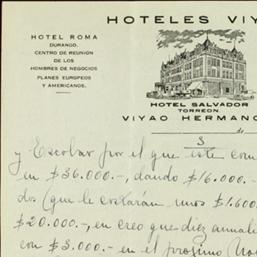 HOTELES VIY
HOTEL ROMA
DURANGO.
CENTRO DE REUNION
DE LOS
HOMBRES DE NEGOCIOS
PLANES EUROPEOS
Y AMERICANOS.
HOTEL SALVADOR
TORREON.
VIYAO HERMANO
de
3
y Escobar por el que este com
en $36.000.-, dando $16.000.-
dos (que le costarán unos $1.600
$20.000.-, en creo que diez anuali
con $3.000.- en el prosimo Nov